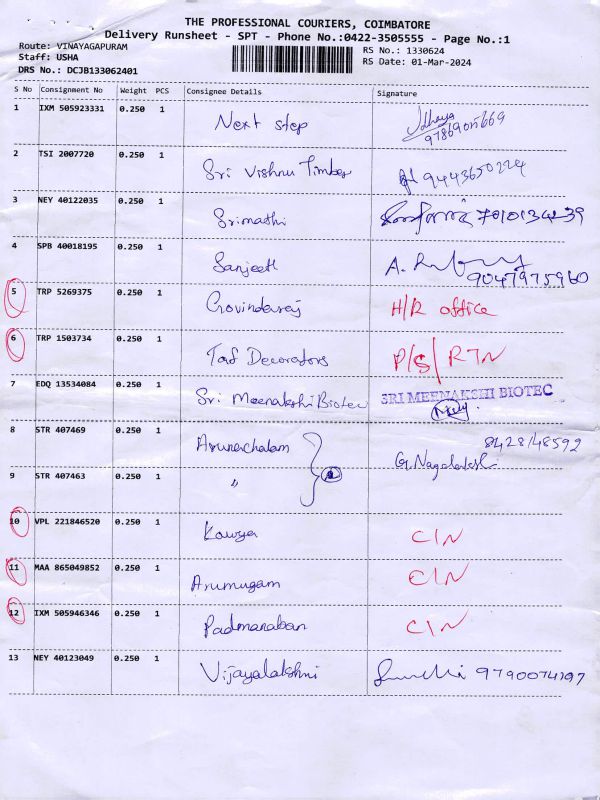 THE PROFESSIONAL COURIERS, COIMBATORE
Delivery Runsheet - SPT - Phone No.:0422-3505555 - Page No.:1
Route: VINAYAGAPURAM
Staff: USHA
DRS No.: DCJB133062401
RS No.: 1330624
RS Date: 01-Mar-2024
S No Consignment No Weight PCS Consignee Details Signature
1 IXM 505923331 0.250 1 Next step
9786905669
2 TSI 2007720 0.250 1 Sri Vishnu Timber 9443650224
3 NEY 40122035 0.250 1 Srimathi 7010134239
4 SPB 40018195 0.250 1 Sanjeeth A.
9047975960
5 TRP 5269375 0.250 1 Govindaraj H/R office
6 TRP 1503734 0.250 1 Decorators P/S/RTN
7 EDQ 13534084 0.250 1 Sri Meenakshi Biotec SRI MEENAKSHI BIOTEC
8 STR 407469 0.250 1 Arunachalam 8428148592
G. Nagalakshmi
9 STR 407463 0.250 1 "
10 VPL 221846520 0.250 1 Kavya C/N
11 MAA 865049852 0.250 1 Arumugam C/N
12 IXM 505946346 0.250 1 Padmanaban C/N
13 NEY 40123049 0.250 1 Vijayalakshmi 9790074197